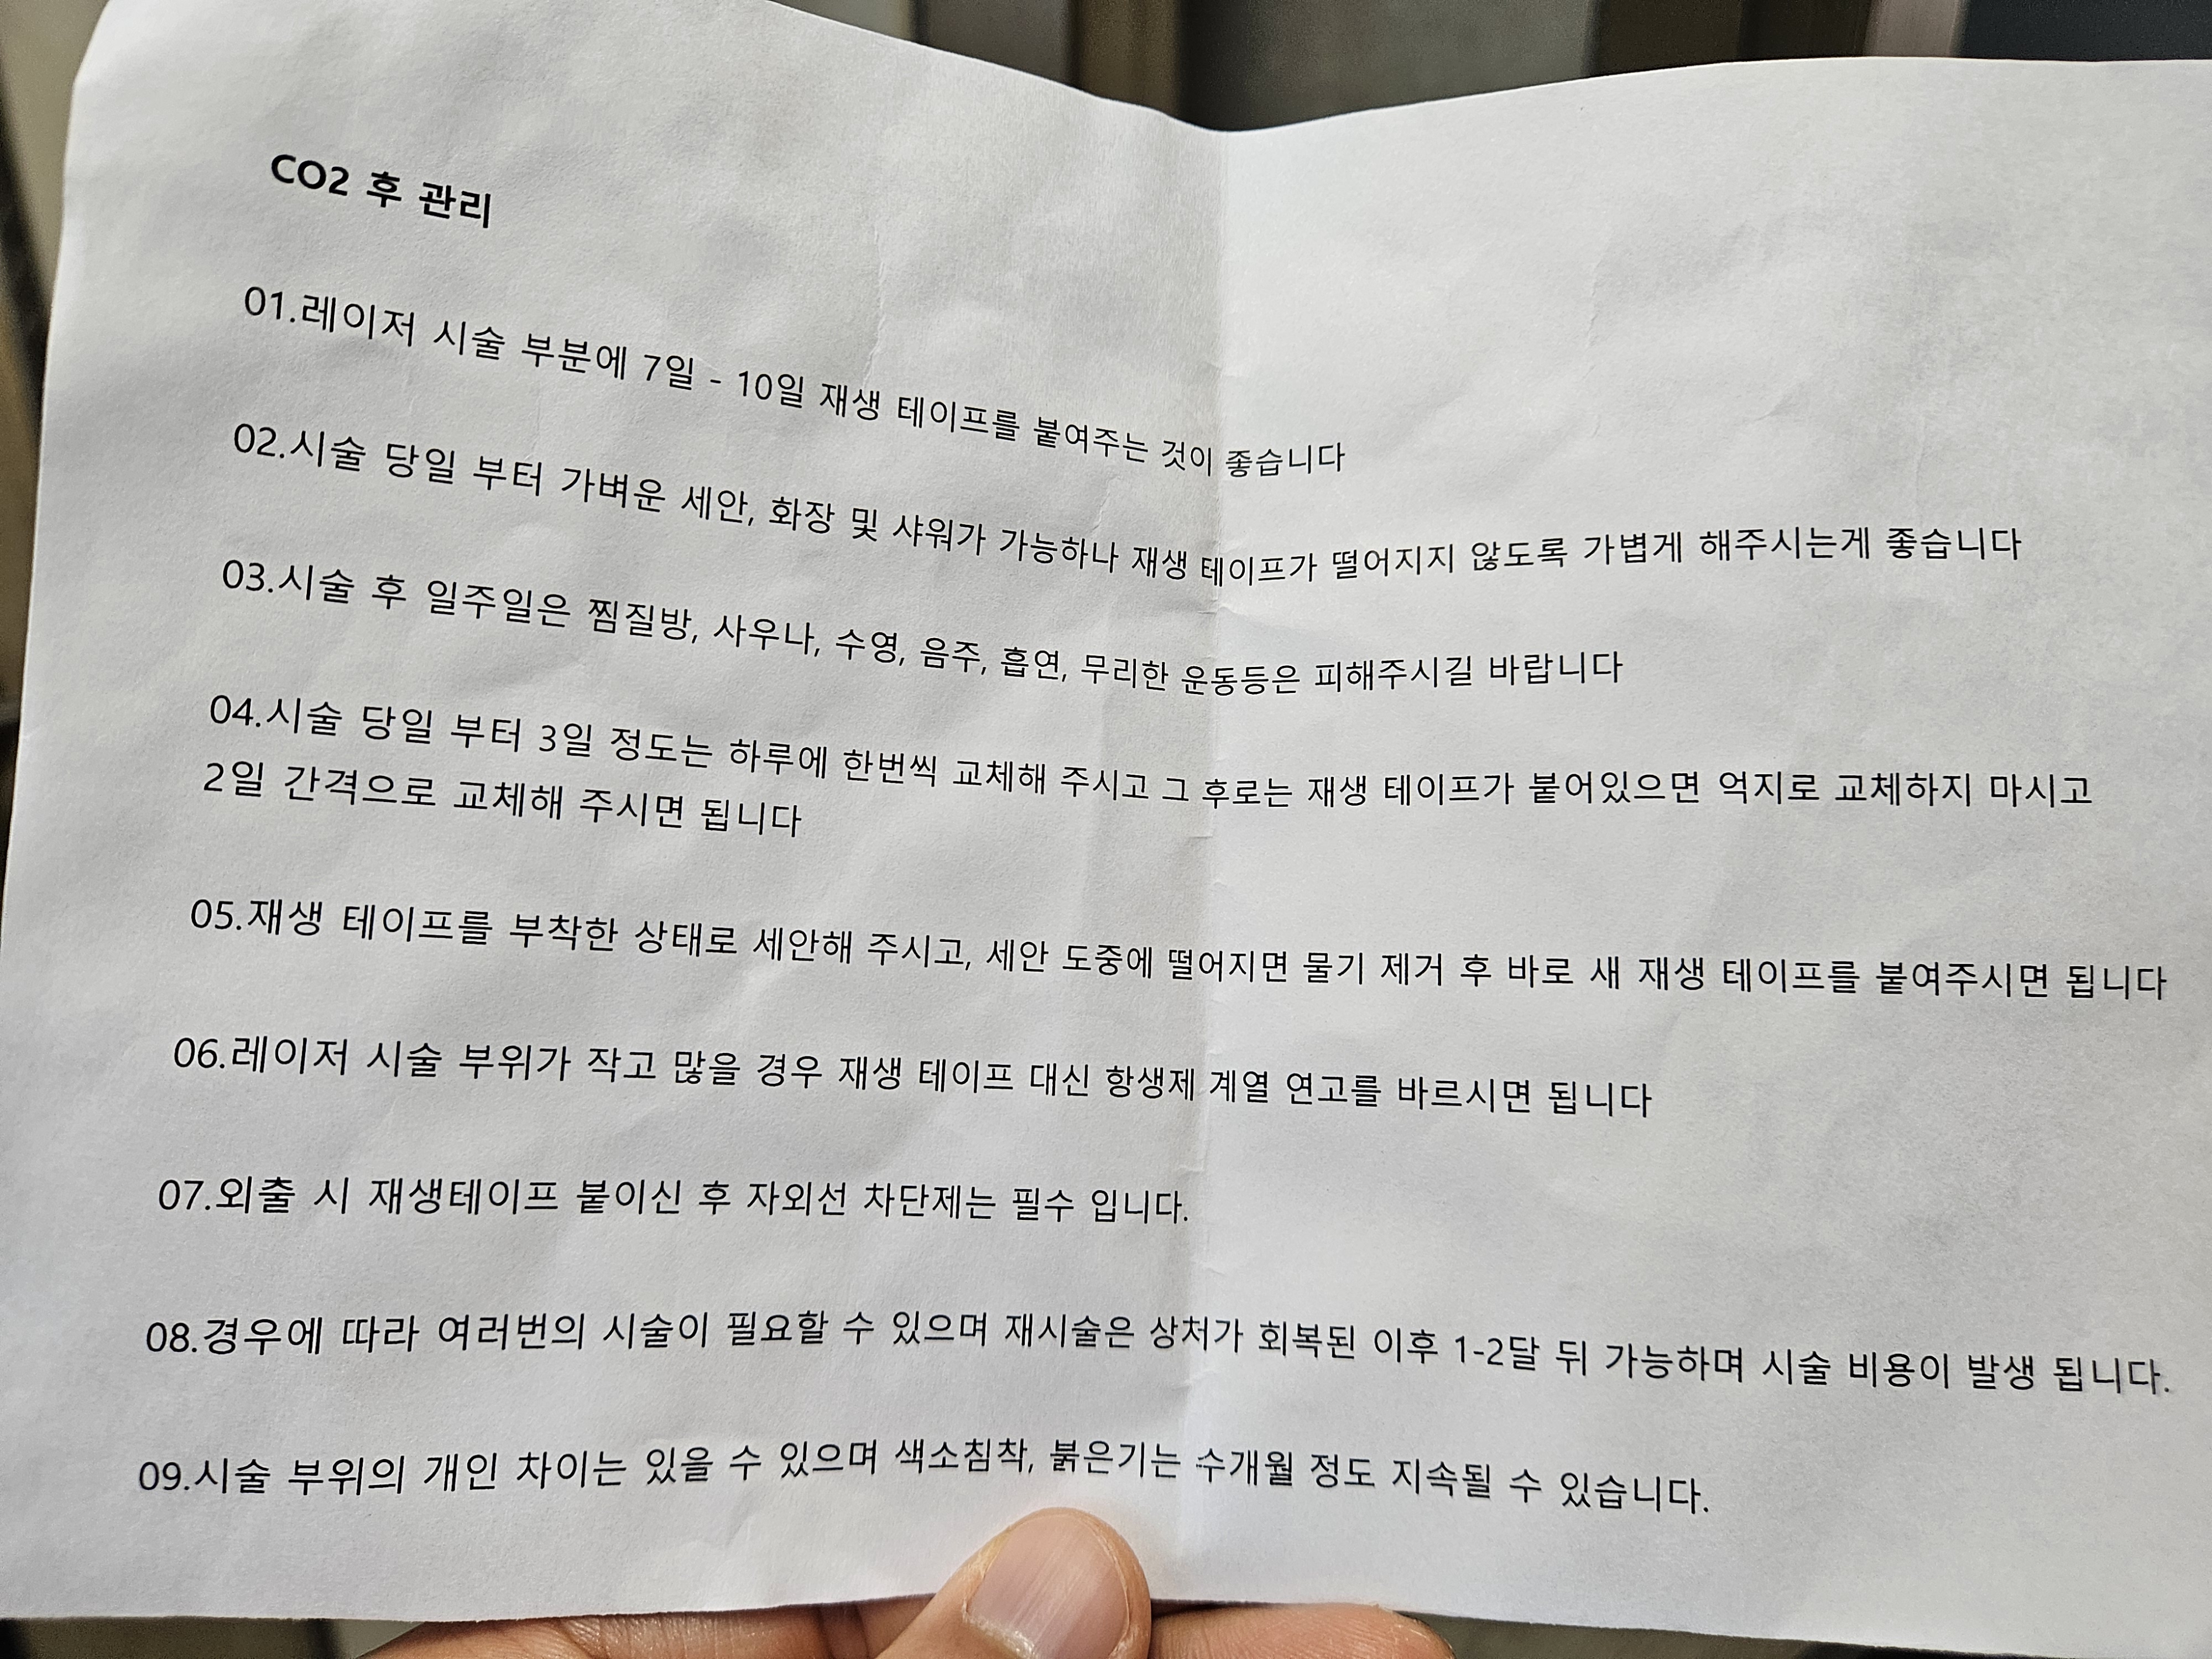 CO2 후 관리
01.레이저 시술 부분에 7일 - 10일 재생 테이프를 붙여주는 것이 좋습니다
02.시술 당일 부터 가벼운 세안, 화장 및 샤워가 가능하나 재생 테이프가 떨어지지 않도록 가볍게 해주시는게 좋습니다
03.시술 후 일주일은 찜질방, 사우나, 수영, 음주, 흡연, 무리한 운동등은 피해주시길 바랍니다
04.시술 당일 부터 3일 정도는 하루에 한번씩 교체해 주시고 그 후로는 재생 테이프가 붙어있으면 억지로 교체하지 마시고
2일 간격으로 교체해 주시면 됩니다
05.재생 테이프를 부착한 상태로 세안해 주시고, 세안 도중에 떨어지면 물기 제거 후 바로 새 재생 테이프를 붙여주시면 됩니다
06.레이저 시술 부위가 작고 많을 경우 재생 테이프 대신 항생제 계열 연고를 바르시면 됩니다
07.외출 시 재생테이프 붙이신 후 자외선 차단제는 필수 입니다.
08.경우에 따라 여러번의 시술이 필요할 수 있으며 재시술은 상처가 회복된 이후 1-2달 뒤 가능하며 시술 비용이 발생 됩니다.
09.시술 부위의 개인 차이는 있을 수 있으며 색소침착, 붉은기는 수개월 정도 지속될 수 있습니다.